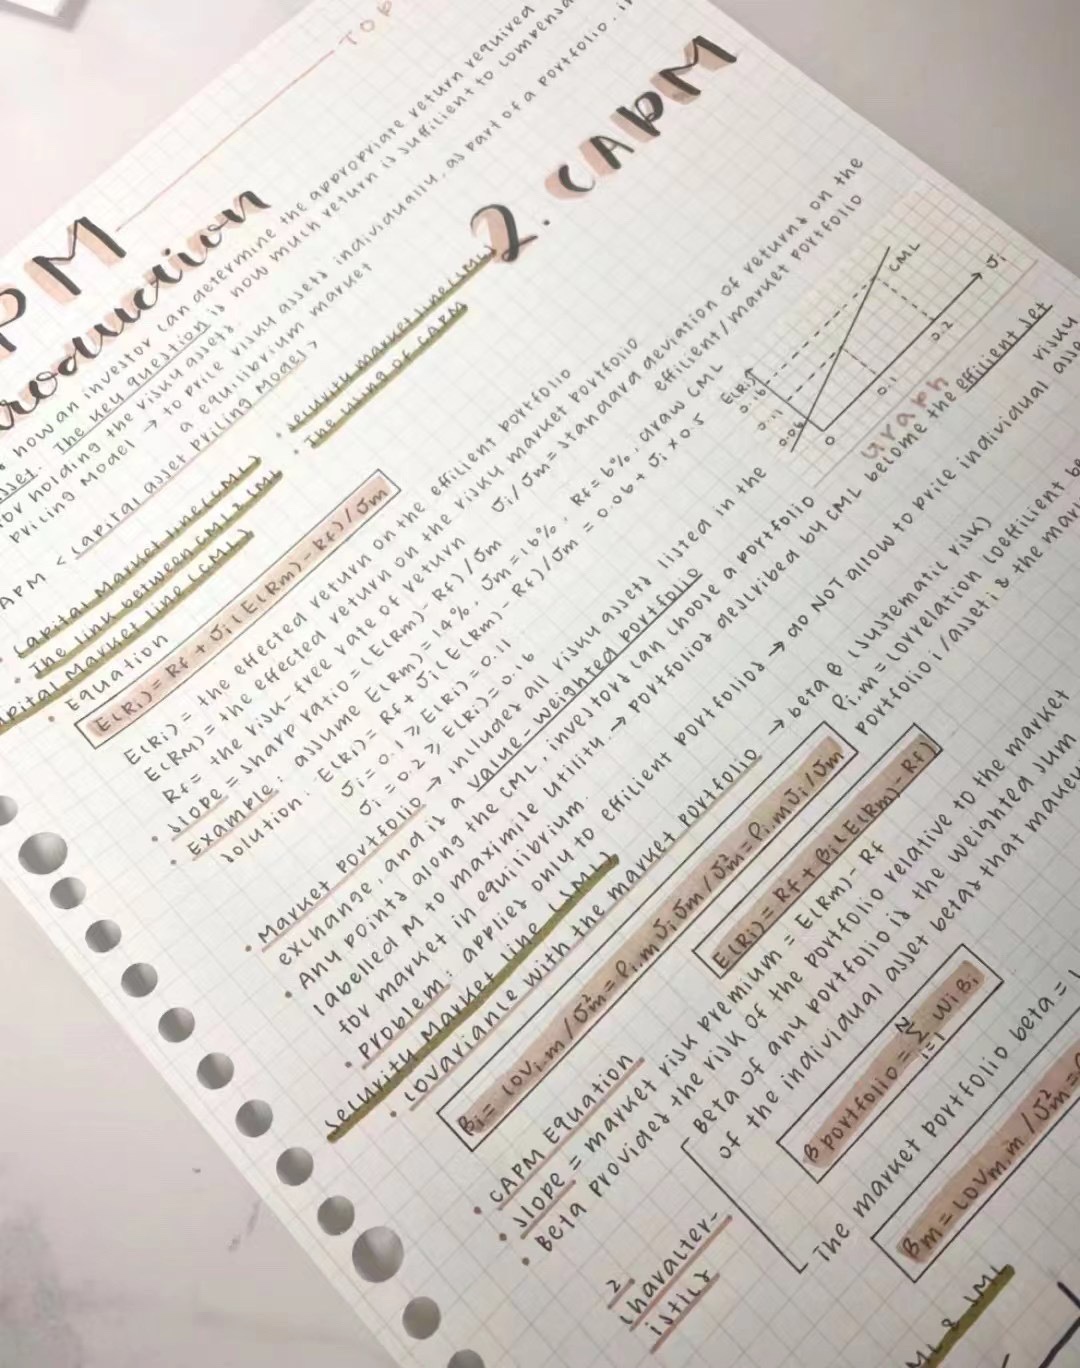 TOP
PM
roduction
how an investor can determine the appropriate return required
sset. The key question is how much return is sufficient to compensa
for holding the risky assets.
Pricing Model → to price risky assets individually, as part of a portfolio. i
a equilibrium market
APM < Capital Asset Pricing Model >
2. CAPM
· Capital Market line (CML)
· The link between CML & SML
· Security market line (SML)
· The using of CAPM
pital Market line (CML)
· Equation
E(Ri) = Rf + σi (E(Rm) - Rf) / σm
E(Ri) = the effected return on the efficient portfolio
E(RM) = the effected return on the risky market portfolio
Rf = the risk-free rate of return
σi/σm = standard deviation of returns on the
efficient/market portfolio
· slope = sharp ratio = (E(Rm) - Rf) / σm
· Example: assume E(Rm) = 14%, σm = 16%, Rf = 6%, draw CML
solution: E(Ri) = Rf + σi (E(Rm) - Rf) / σm = 0.06 + σi × 0.5
σi = 0.1 ⇒ E(Ri) = 0.11
σi = 0.2 ⇒ E(Ri) = 0.16
E(Ri)
0.16
0.11
0.06
0
0.1
0.2
σi
CML
Graph
· Market portfolio → includes all risky assets listed in the
exchange, and is a value-weighted portfolio
· Any points along the CML, investors can choose a portfolio
labelled M to maximise utility → portfolios described by CML become the efficient set
for market in equilibrium.
· problem: applies only to efficient portfolios → do NOT allow to price individual asse
risky
security market line (SML)
· covariance with the market portfolio → beta β (systematic risk)
βi = COVi.m / σ²m = Pi.m σi σm / σ²m = Pi.m σi / σm
Pi.m = correlation coefficient be
portfolio i/asset i & the mar
· CAPM Equation
E(Ri) = Rf + βi (E(Rm) - Rf)
· slope = market risk premium = E(Rm) - Rf
· Beta provides the risk of the portfolio relative to the market
2
character-
istics
Beta of any portfolio is the weighted sum
of the individual asset betas that makeu
β portfolio = N Σ i=1 Wi Bi
The market portfolio beta = 1
βm = COVm.m / σ²m =
ML & SML